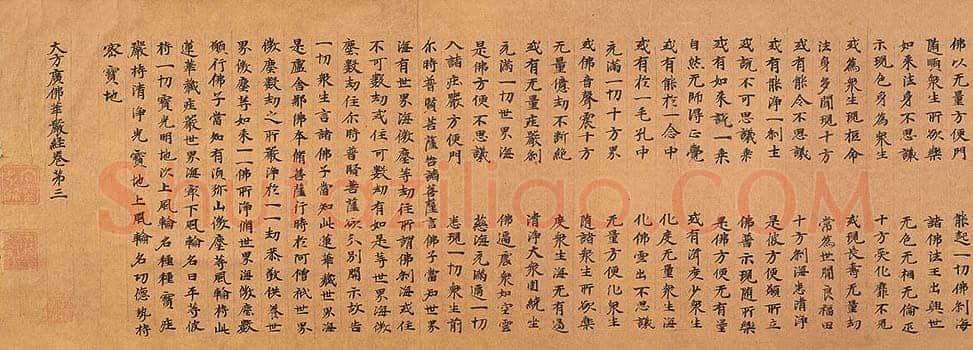 佛以无量方便 能起一切佛刹海
随順衆生所欲樂 諸佛法王出興世
如来法身不思議 无色无相无倫匹
示現色身為衆生 十方受化靡不見
或為衆生現短命 或現長壽无量劫
法身多門現十方 常為世間良福田
或有能令不思議 十方刹海悉清淨
或有能淨一刹土 是彼方便願所立
或說不可思議乘 佛普示現随所樂
或有如来說一乘 是佛方便无有量
自然无師得正覺 或有濟度少衆生
或有能於一念中 化度无量衆生海
或有於一毛孔中 化佛雲出不思議
充滿一切十方界 无量方便化衆生
或佛音聲震十方 随諸衆生所欲樂
无量億劫不斷絶 度衆生海无有邊
或有无量莊嚴刹 清淨大衆圍繞坐
充滿一切世界海 佛遍處衆如空雲
是佛方便不思議 慈海充滿遍一切
入諸莊嚴方便門 悉現一切衆生前
尒時普賢菩薩告諸菩薩言佛子當知世界
海有世界海微塵等劫住所謂佛刹海或住
不可數劫或住可數劫有如是等世界海微
塵數劫住尒時普賢菩薩欲分別開示故告
一切衆生言諸佛子當知此蓮華藏世界海
是盧舍那佛本脩菩薩行時於阿僧祇世界
微塵數劫之所嚴淨於一一劫恭敬供養世
界微塵等如来一一佛所淨脩世界海微塵數
願行佛子當知有須弥山微塵等風輪持此
蓮華藏莊嚴世界海最下風輪名曰平等彼
持一切寶光明地次上風輪名種種寶莊
嚴持清淨光寶地上風輪名功德勢持
密寶地
大方廣佛華嚴経卷第三